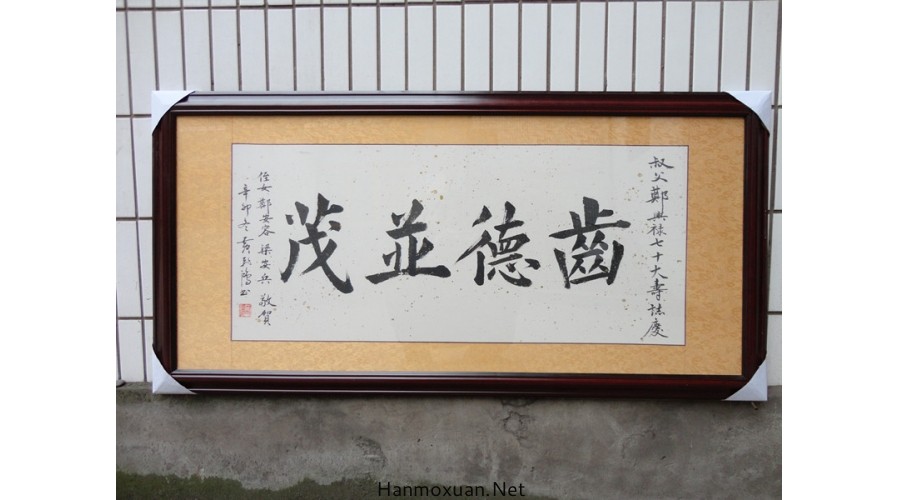 叔父鄭興祿七十大壽誌慶
齒德並茂
侄女鄭安容 梁安兵 敬賀
辛卯冬 書
Hanmoxuan.Net